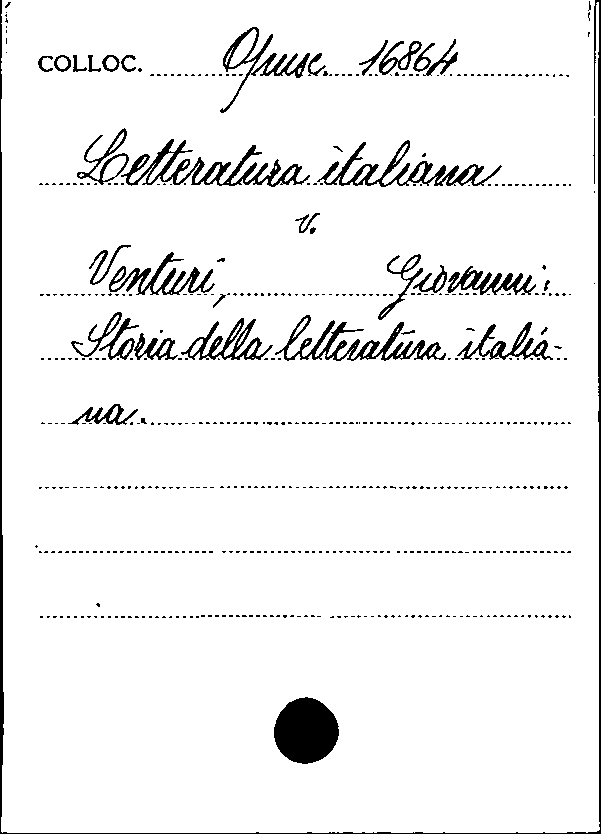 COLLOC. Opusc. 16864
Letteratura italiana
v.
Venturi, Giovanni:
Storia della letteratura italia-
na.